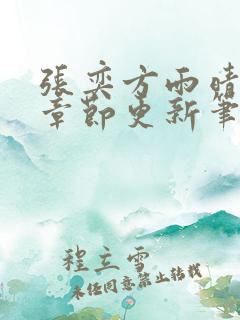 張奕方雨晴
章節更新筆
程立雪
未經同意禁止轉載